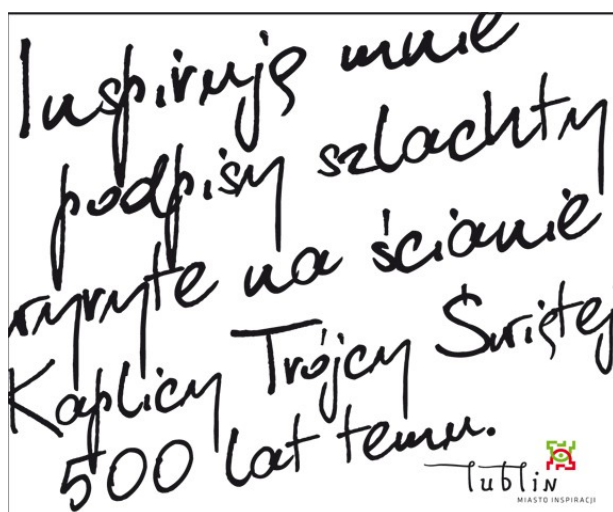 Inspirują mnie
podpisy szlachty
wyryte na ścianie
Kaplicy Trójcy Świętej
500 lat temu.
Lublin
MIASTO INSPIRACJI